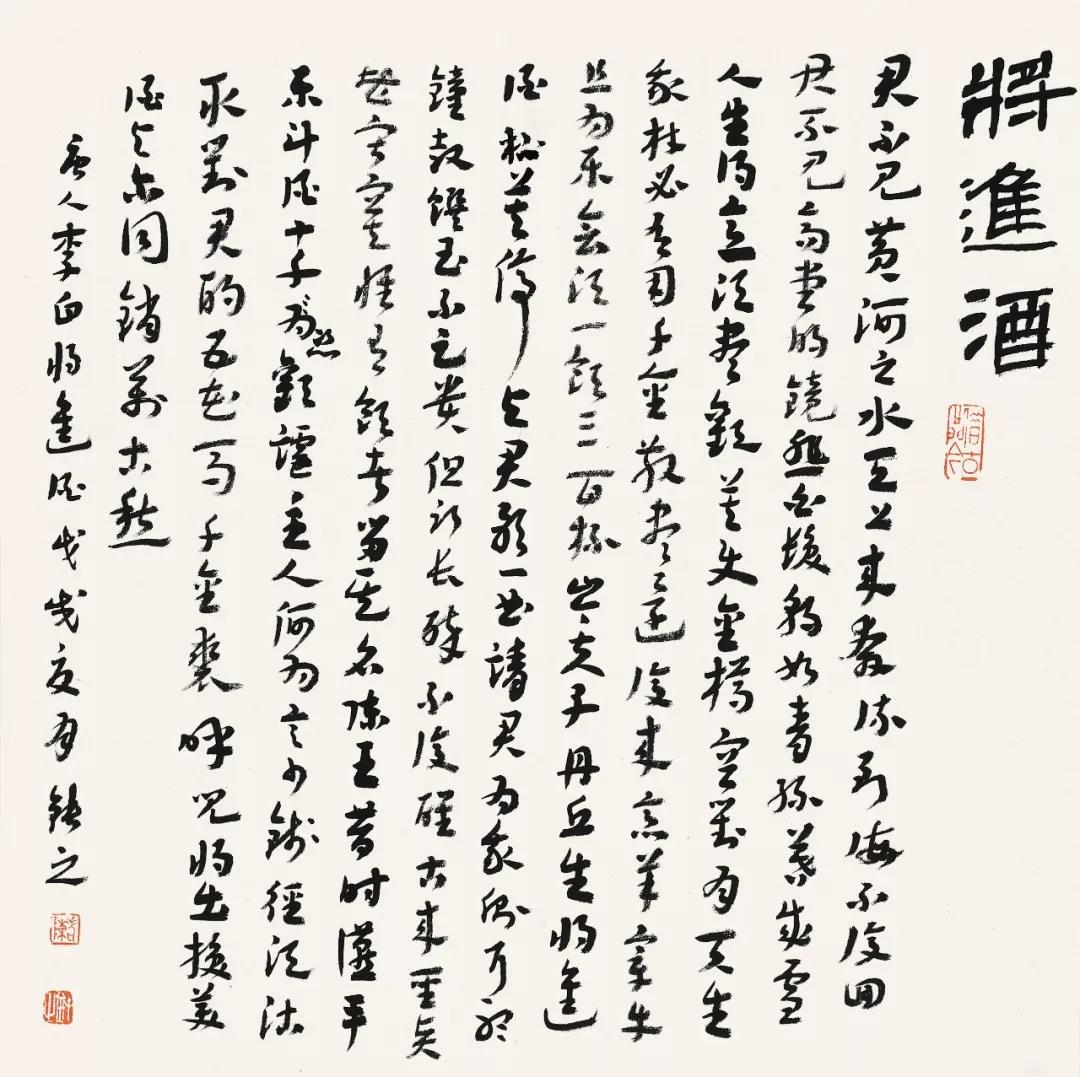 將進酒
君不見黃河之水天上來奔流到海不復回
君不見高堂明鏡悲白髮朝如青絲暮成雪
人生得意須盡歡莫使金樽空對月天生
我材必有用千金散盡還復來烹羊宰牛
且為樂會須一飲三百杯岑夫子丹丘生將進
酒杯莫停與君歌一曲請君為我側耳聽
鐘鼓饌玉不足貴但願長醉不復醒古來聖賢
皆寂寞惟有飲者留其名陳王昔時讌平
樂斗酒十千恣歡謔主人何為言少錢徑須沽
取對君酌五花馬千金裘呼兒將出換美
酒與爾同銷萬古愁
唐人李白將進酒戊戌夏月